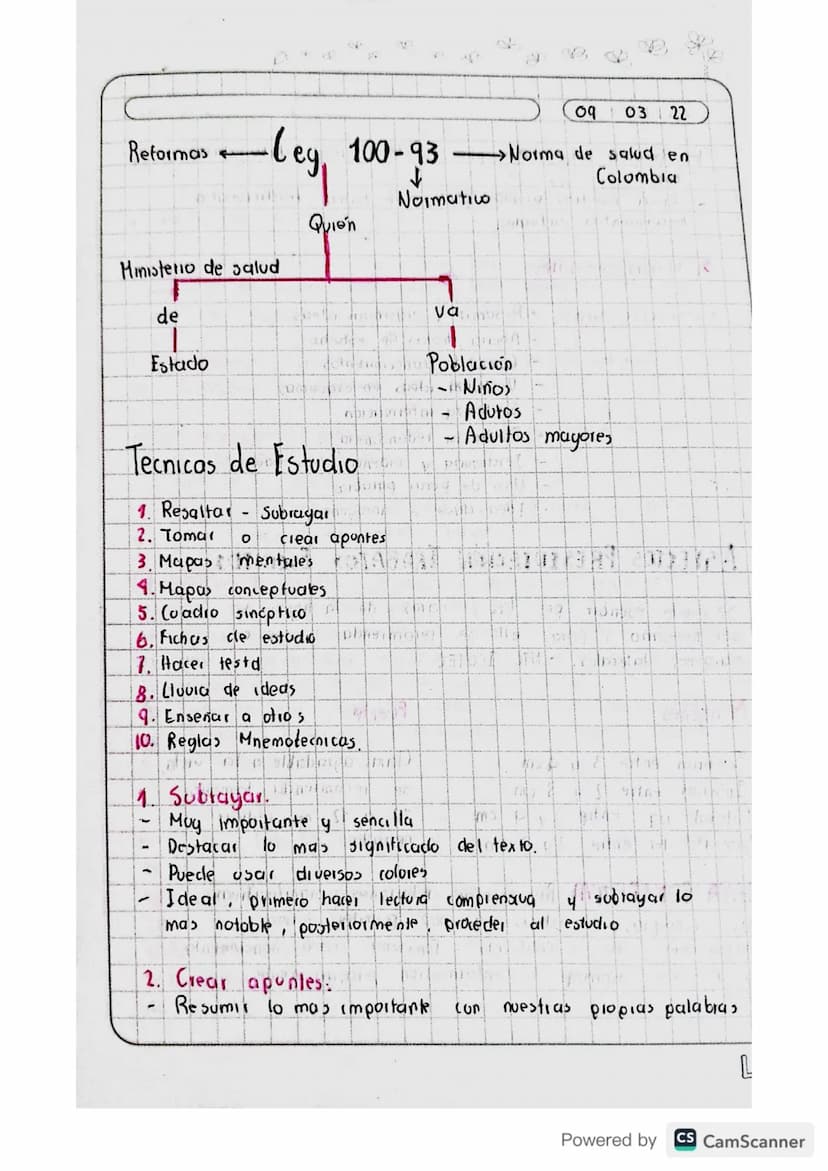 09 03 22
Reformas ← Ley 100-93 → Norma de salud en
Colombia
↓
Normativo
Quién
Ministerio de salud
de
va
Estado
Población
- Niños
- Adutos
- Adultos mayores
Tecnicas de Estudio
1. Resaltar - Subrayar
2. Tomar o crear apuntes
3. Mapas mentales
4. Mapas conceptuales
5. Cuadro sinóptico
6. Fichas de estudio
7. Hacer testd
8. Lluvia de ideas
9. Enseñar a otros
10. Reglas Mnemotecnicas.
1. Subrayar.
- Muy importante y sencilla
- Destacar lo mas significado del texto.
- Puede usar diversos colores
- Ideal, primero hacer lectura comprensiva y subrayar lo
mas notable, posteriormente. proceder al estudio
2. Crear apuntes:
- Resumir lo mas importante con nuestras propias palabras
Powered by CS CamScanner